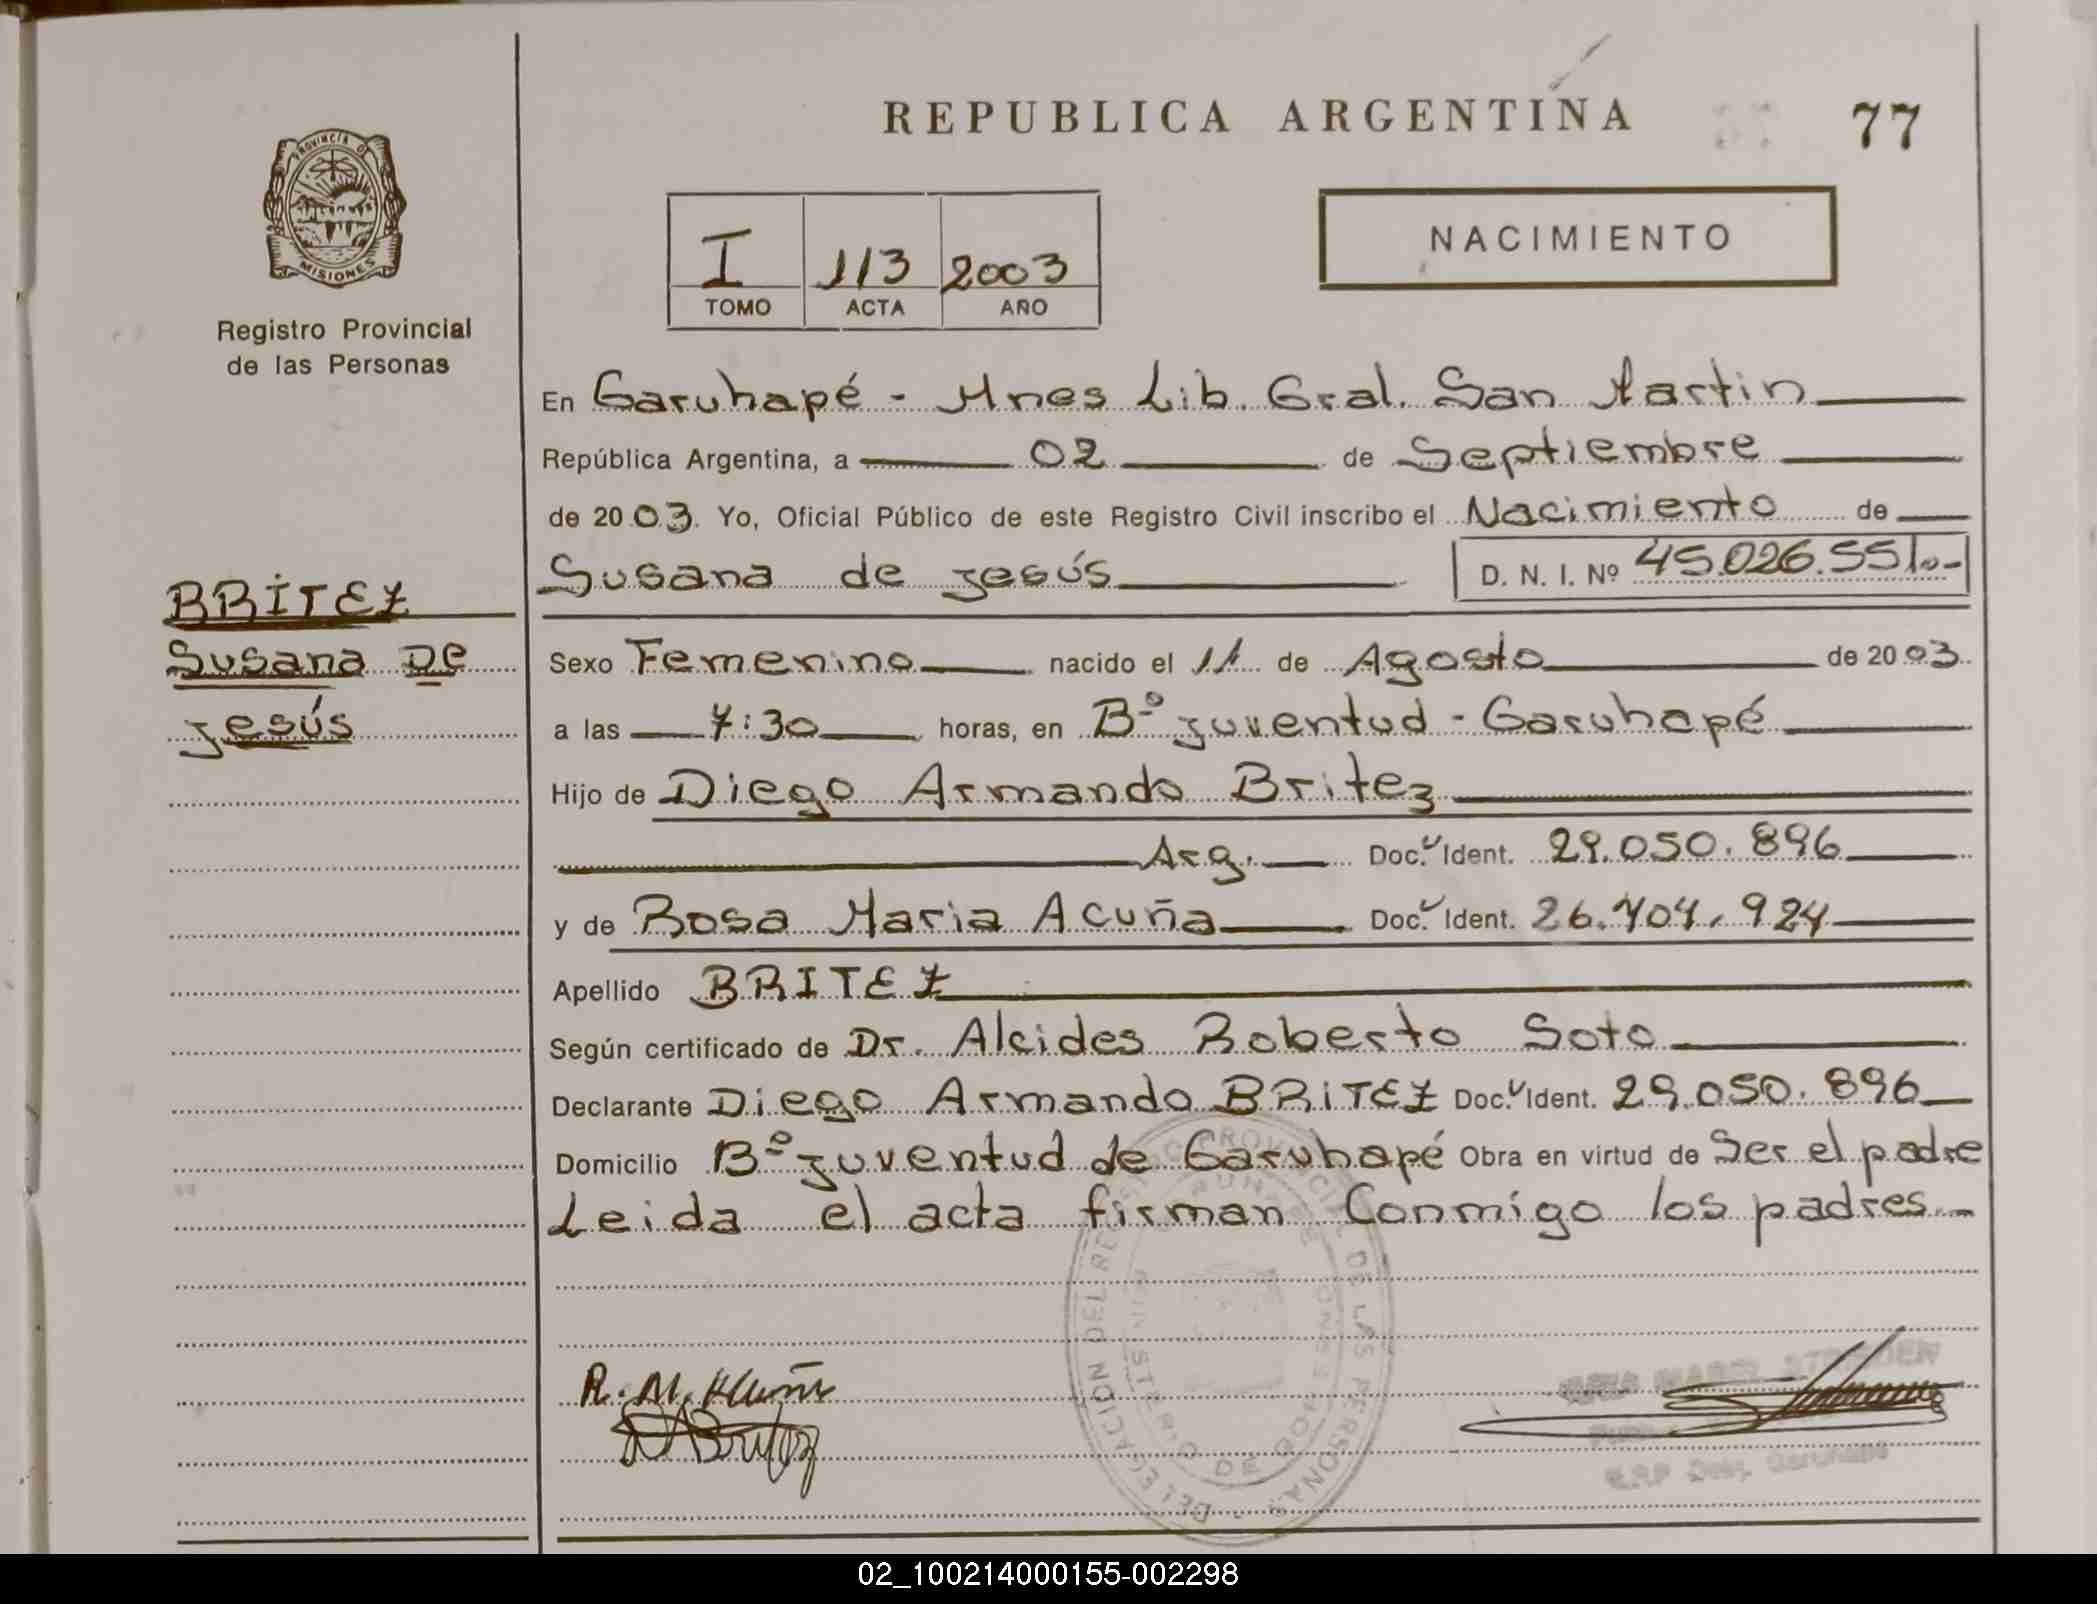 REPUBLICA ARGENTINA
77
PROVINCIA DE
MISIONES
Registro Provincial
de las Personas
I 113 2003
TOMO ACTA AÑO
NACIMIENTO
En Garuhapé - Mnes Lib. Gral. San Martin
República Argentina, a 02 de Septiembre
de 2003. Yo, Oficial Público de este Registro Civil inscribo el Nacimiento de
Susana de Jesús D. N. I. Nº 45.026.551.-
BRITEZ
Susana De
Jesús
Sexo Femenino nacido el 11 de Agosto de 2003
a las 7:30 horas, en Bº Juventud - Garuhapé
Hijo de Diego Armando Britez
Arg. Doc. Ident. 29.050.896
y de Rosa Maria Acuña Doc. Ident. 26.704.924
Apellido BRITEZ
Según certificado de Dr. Alcides Roberto Soto
Declarante Diego Armando BRITEZ Doc. Ident. 29.050.896
Domicilio Bº Juventud de Garuhapé Obra en virtud de Ser el padre
Leida el acta firman Conmigo los padres.-
DELEGACION DEL REGISTRO PROVINCIAL DE LAS PERSONAS
GARUHAPE MISIONES
MINISTERIO DE GOBIERNO
R. M. Acuña
DABritez
R.P.P Deleg. Garuhapé
02_100214000155-002298